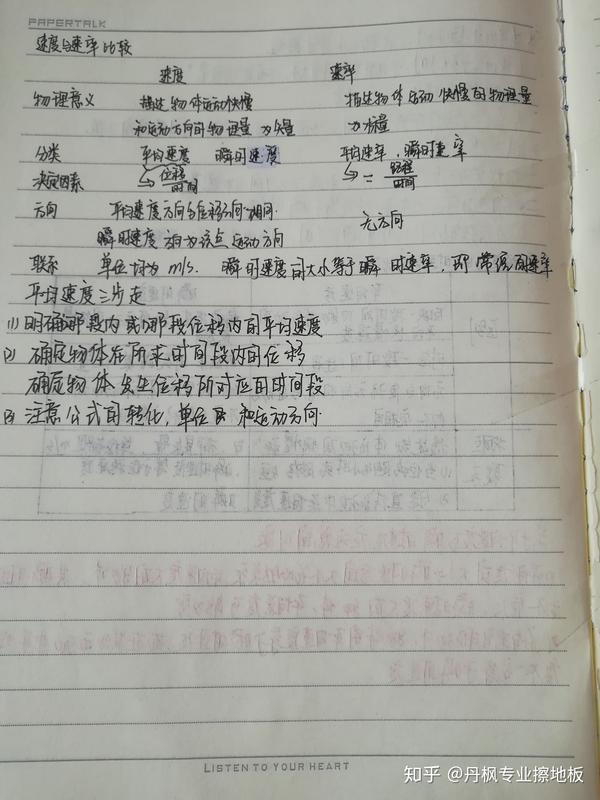 PAPERTALK
速度与速率比较
速度 速率
物理意义 描述物体运动快慢 描述物体运动快慢的物理量
和运动方向的物理量 为矢量 为标量
分类 平均速度 瞬时速度 平均速率,瞬时速率
决定因素 位移/时间 = 路程/时间
方向 平均速度方向与位移方向相同. 无方向
瞬时速度方向为该点运动方向
联系 单位均为 m/s. 瞬时速度的大小等于瞬时速率,即常说的速率
平均速度三步走
(1) 明确哪段内或哪段位移内的平均速度
(2) 确定物体在所求时间段内的位移
确定物体发生位移所对应的时间段
(3) 注意公式的转化,单位 和运动方向.
LISTEN TO YOUR HEART
知乎 @丹枫专业擦地板